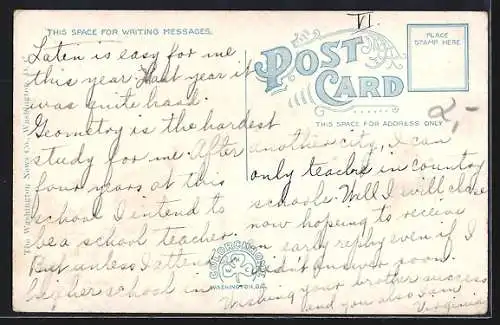 VI.
THIS SPACE FOR WRITING MESSAGES.
POST CARD
PLACE
STAMP HERE
THIS SPACE FOR ADDRESS ONLY
2,-
The Washington News Co., Washington, D.C.
Laten is easy for me
this year. Last year it
was quite hard.
Geometry is the hardest
study for me. After
four years at this
school I intend to
be a school teacher.
But unless I attend
higher school in
another city, I can
only teach in country
schools. Well I will close
now hoping to receive
an early reply even if I
didn't answer soon.
Wishing your brother success
and you also I am
Virginia
COLORCHROME
WASHINGTON, D.C.